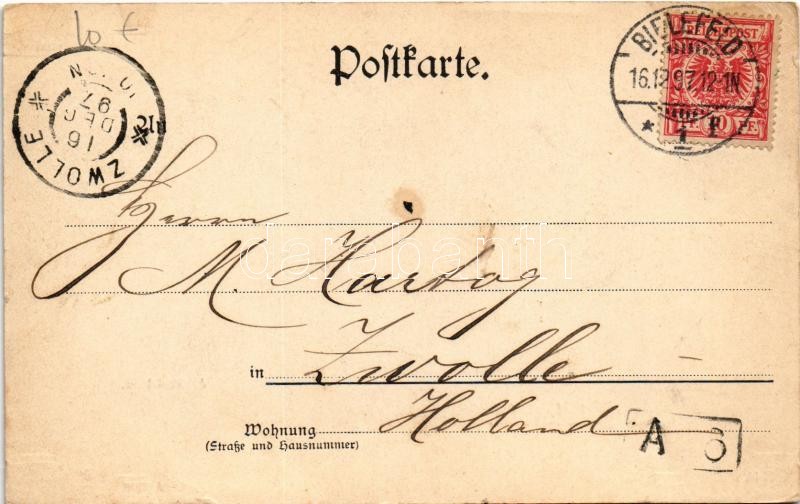 10 t
Postkarte.
BIELEFELD
16.12.97.12-1N
* 1 F
REICHSPOST
PF. 10 PF.
ZWOLLE
16
DEC
97
Herrn
M. Hartog
darabanth
in Zwolle
Holland
Wohnung
(Straße und Hausnummer)
A 3